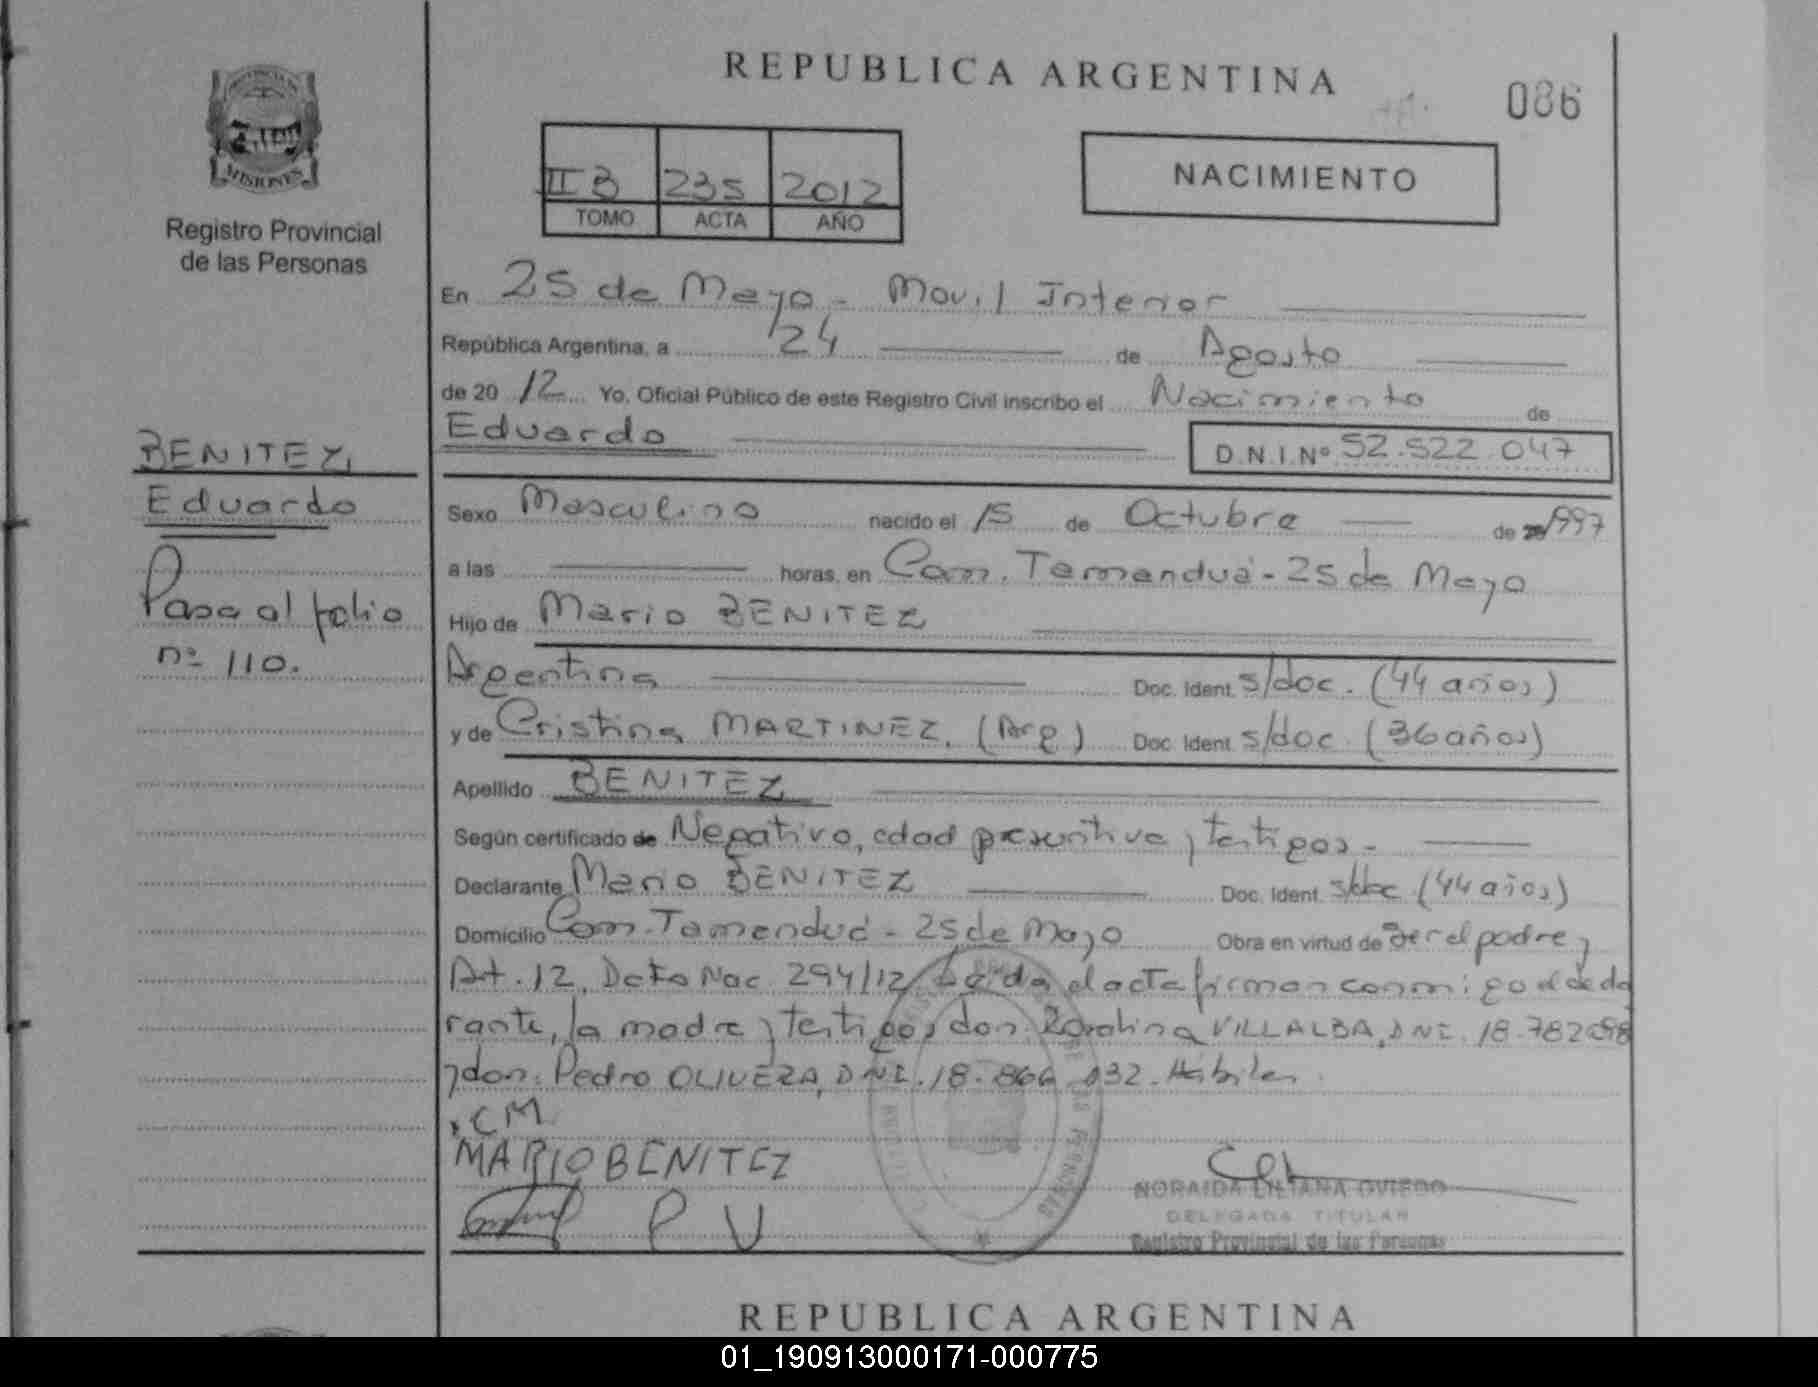 REPUBLICA ARGENTINA
086
II B 235 2012
TOMO ACTA AÑO
NACIMIENTO
PROVINCIA DE
MISIONES
Registro Provincial
de las Personas
BENITEZ,
Eduardo
Pasa al folio
nº 110.
En 25 de Mayo - Movil Interior
República Argentina, a 24 de Agosto
de 20 12 Yo, Oficial Público de este Registro Civil inscribo el Nacimiento de
Eduardo D.N.I.Nº 52.522.047
Sexo Masculino nacido el 15 de Octubre de 1997
a las horas, en Com. Tamanduá - 25 de Mayo
Hijo de Mario BENITEZ
Argentina Doc. Ident. s/doc. (44 años)
y de Cristina MARTINEZ, (Arg) Doc. Ident. s/doc. (36 años)
Apellido BENITEZ
Según certificado de Negativo, edad presuntiva y testigos.-
Declarante Mario BENITEZ Doc. Ident. s/doc (44 años)
Domicilio Com. Tamanduá - 25 de Mayo Obra en virtud de ser el padre y
Art. 12, Dcto Nac. 294/12 Leída el acta firman conmigo el decla
rante, la madre y testigos don: VILLALBA, DNI. 18.782
y don: Pedro OLIVERA, DNI. 18.866.132. Hábiles.
CM
MARIO BENITEZ
P V
NORAIDA LILIANA OVIEDO
DELEGADA TITULAR
Registro Provincial de las Personas
REPUBLICA ARGENTINA
01_190913000171-000775